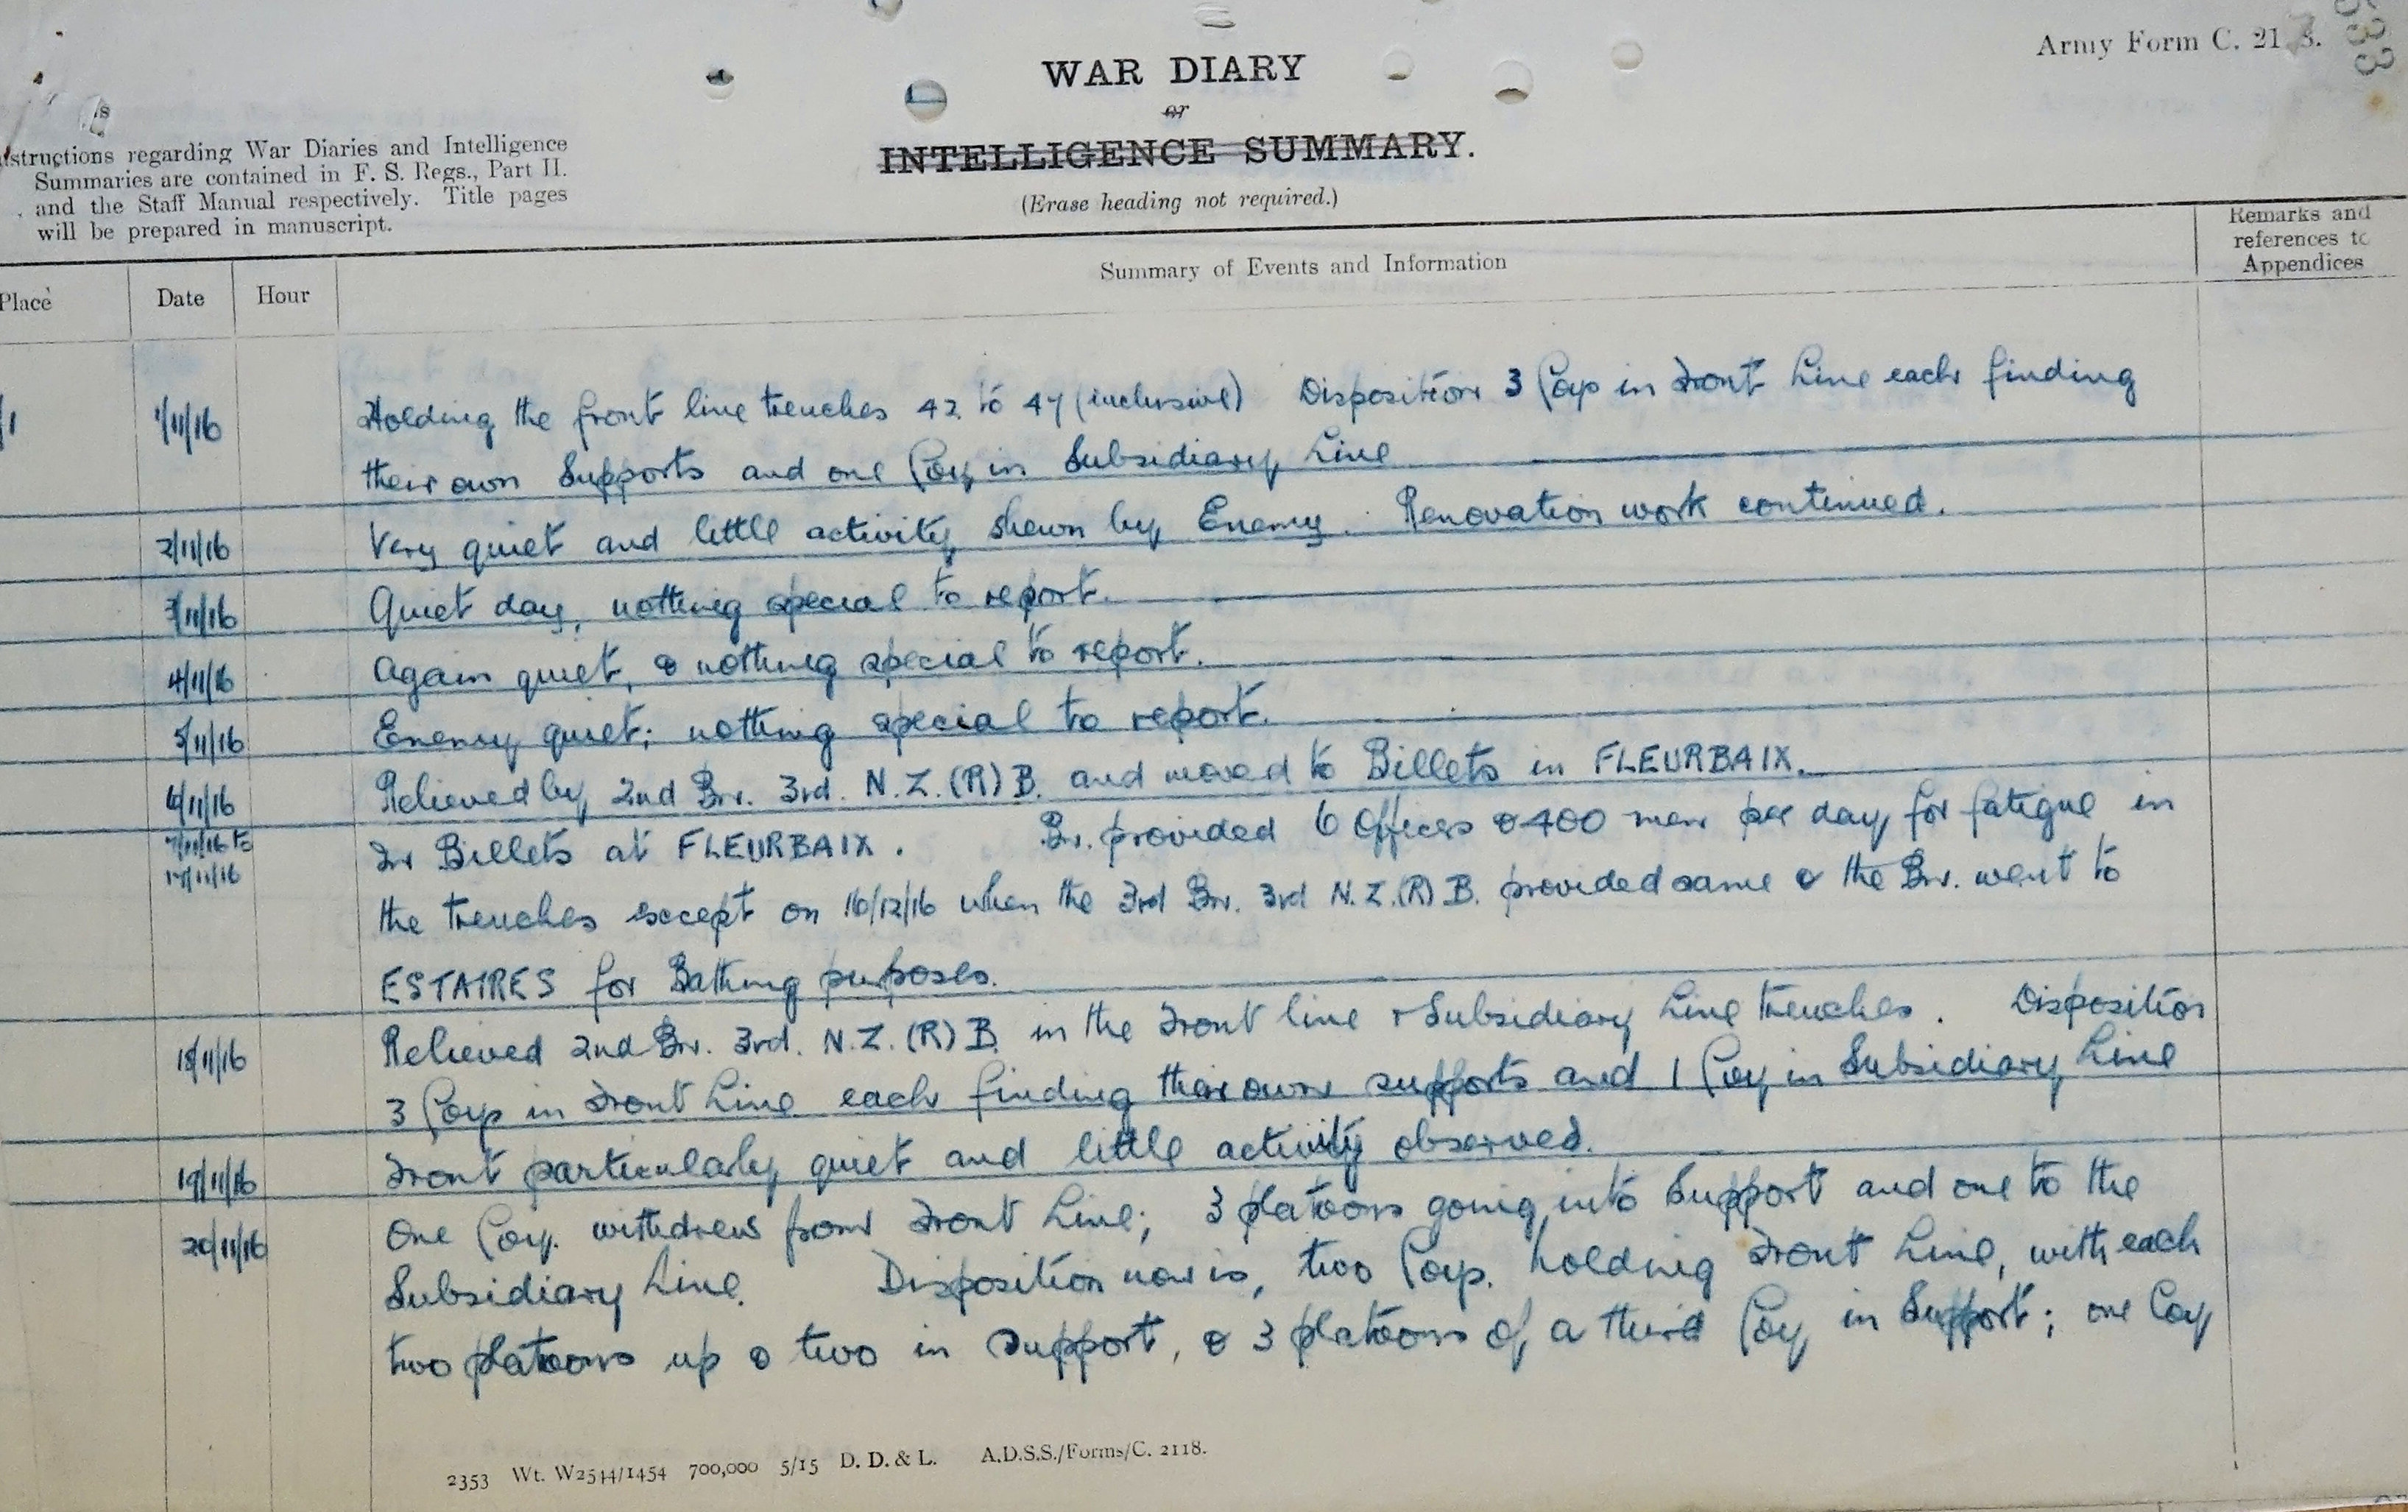 Army Form C. 21 8.
WAR DIARY
or
INTELLIGENCE SUMMARY.
(Erase heading not required.)
nstructions regarding War Diaries and Intelligence
Summaries are contained in F. S. Regs., Part II.
and the Staff Manual respectively. Title pages
will be prepared in manuscript.
Place
Date
Hour
Summary of Events and Information
Remarks and
references to
Appendices
1/11/16 Holding the front line trenches 42 to 47 (inclusive) Disposition 3 Coys in Front Line each finding
their own Supports and one Coy in Subsidiary Line
2/11/16 Very quiet and little activity shewn by Enemy. Renovation work continued.
3/11/16 Quiet day, nothing special to report.
4/11/16 Again quiet, & nothing special to report.
5/11/16 Enemy quiet; nothing special to report.
6/11/16 Relieved by 2nd Bn. 3rd. N.Z.(R)B. and moved to Billets in FLEURBAIX.
7/11/16 to In Billets at FLEURBAIX. Bn. provided 6 Officers & 400 men per day for fatigue in
17/11/16 the trenches except on 16/12/16 when the 3rd Bn. 3rd N.Z.(R)B. provided same & the Bn. went to
ESTAIRES for Bathing purposes.
18/11/16 Relieved 2nd Bn. 3rd. N.Z.(R)B. in the Front line & Subsidiary Line trenches. Disposition
3 Coys in Front Line each finding their own supports and 1 Coy in Subsidiary Line
19/11/16 Front particularly quiet and little activity observed.
20/11/16 One Coy. withdrew from Front Line; 3 platoons going into Support and one to the
Subsidiary Line. Disposition now is, two Coys. holding Front Line, with each
two platoons up & two in Support, & 3 platoons of a third Coy in Support; one Coy
2353 Wt. W2544/1454 700,000 5/15 D. D. & L. A.D.S.S./Forms/C. 2118.